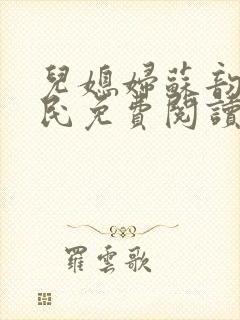 兒媳婦蘇韵
民免費閱讀
羅雲歌